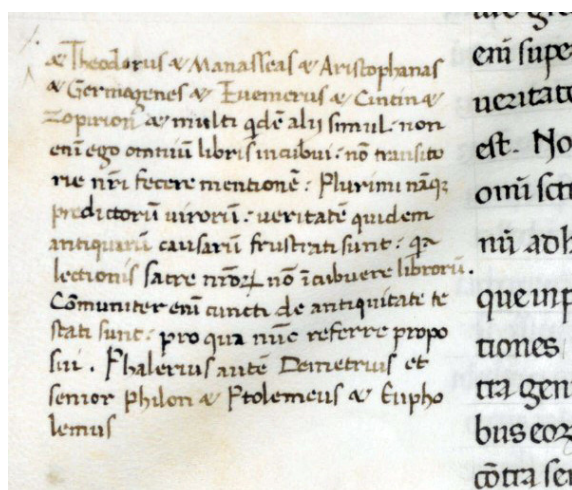 & Theodorus & Manasseas & Aristophanas
& Germogenes & Euemerus & Cintin &
Zopirion & multi qdē alij simul · non
enī ego omniū libris incubui · nō transito
rie nr̄i fecere mentionē : Plurimi nāqꝫ
predictorū uirorū · ueritatē quidem
antiquarū causarū frustrati sunt : qa
lectionis sacre nr̄oꝝ nō īcubuere librorū .
Cōmuniter enī cuncti de antiquitate te
stati sunt : pro qua nūc referre propo
sui . Phalerius autē Demetrius et
senior Philon & Ptolemeus & Eupho
lemus
enī supe
ueritate
est . No
omī
nū adh
que inp
tiones
tra gen
bus eoꝝ
cōtra ser